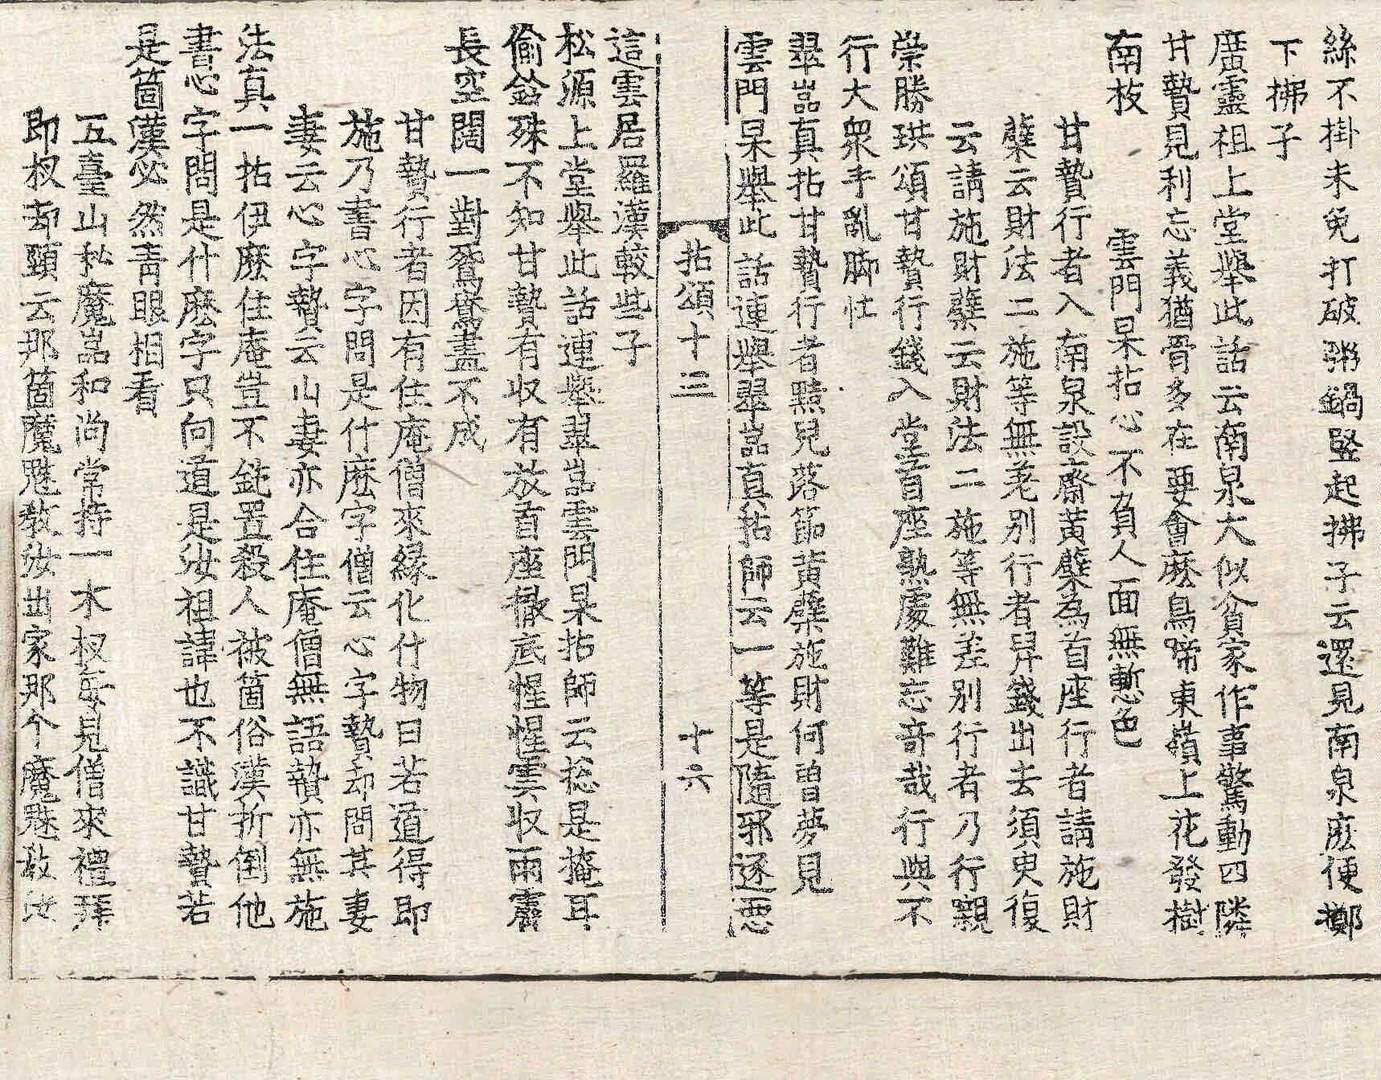 絲不掛未免打破粥鍋竪起拂子云還見南泉麽便擲
下拂子
廣靈祖上堂舉此話云南泉大似貧家作事驚動四隣
甘贄見利忘義猶胥多在要會麽鳥啼東嶺上花發樹
南枝　雲門杲拈心不負人面無慙色
甘贄行者入南泉設齋黃蘗為首座行者請施財
蘗云財法二施等無差別行者舁錢出去須臾復
云請施財蘗云財法二施等無差別行者乃行䞋
崇勝珙頌甘贄行錢入堂首座熟處難忘奇哉行與不
行大衆手亂脚忙
翠嵓真拈甘贄行者黠兒落節黃蘗施財何曾夢見
雲門杲舉此話連舉翠嵓真拈師云一等是隨邪逐惡
拈頌十三　十六
這雲居羅漢較些子
松源上堂舉此話連舉翠嵓雲門杲拈師云捴是掩耳
偷鈴殊不知甘贄有収有放首座徹底惺惺雲収雨霽
長空闊一對鴛鴦畫不成
甘贄行者因有住庵僧來緣化什物曰若道得即
施乃書心字問是什麽字僧云心字贄却問其妻
妻云心字贄云山妻亦合住庵僧無語贄亦無施
法真一拈伊麽住庵豈不鈍置殺人被箇俗漢折倒他
書心字問是什麽字只向道是汝祖諱也不識甘贄若
是箇漢必然青眼相看
五臺山秘魔嵓和尚常持一木杈每見僧來禮拜
即杈却頸云那箇魔魅敎汝出家那个魔魅敎汝